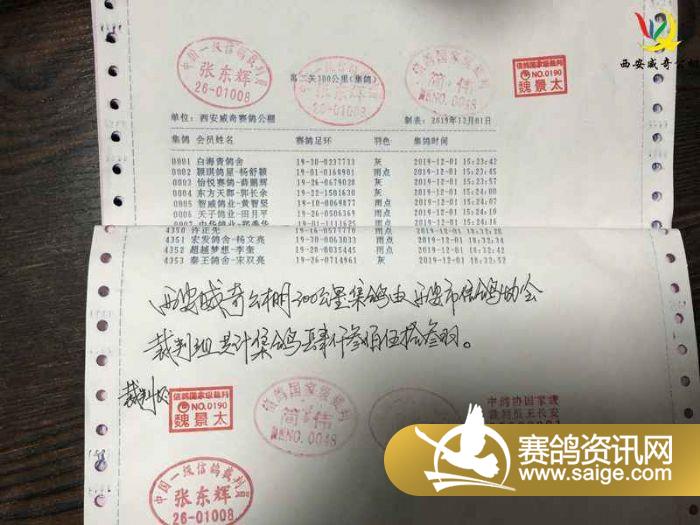 西安威奇公棚
中国一级信鸽裁判员
张东辉
26-01008
信鸽国家级裁判
简伟
NO.0048
信鸽国家级裁判
NO.0190
魏景太
第二关300公里(集鸽)
单位: 西安威奇赛鸽公棚 制表: 2019年12月01日
集鸽 会员姓名 赛鸽足环 羽色 集鸽时间
0001 白海青鸽舍 19-30-0237713 灰 2019-12-01 15:23:42
0002 颖琪鸽屋-杨舒颖 19-01-0168901 雨点 2019-12-01 15:23:45
0003 怡悦赛鸽-薛鹏辉 19-26-0679028 灰 2019-12-01 15:23:57
0004 东方天郡-郭长余 19-22-1501630 灰 2019-12-01 15:24:08
0005 智威鸽业-黄智坚 19-10-0063007 雨点 2019-12-01 15:24:10
0006 天子鸽业-田月平 19-26-0506369 雨点 2019-12-01 15:24:16
4350 许正先 19-16-0577761 雨点
4351 宏发鸽舍-杨文亮 19-30-0063033 雨点 2019-12-01 18:32:34
4352 超越梦想-李奎 19-20-0086335 雨点 2019-12-01 18:32:52
4353 秦王鸽舍-宋双亮 19-26-0714961 灰 2019-12-01 18:32:58
西安威奇公棚300公里集鸽由西安市信鸽协会
裁判组共计集鸽肆仟叁佰伍拾叁羽。
裁判长
信鸽国家级裁判
NO.0190
魏景太
信鸽国家级裁判
简伟
NO.0048
中鸽协国家级
裁判员王长安
中国一级信鸽裁判员
张东辉
26-01008
赛鸽资讯网
www.saige.com